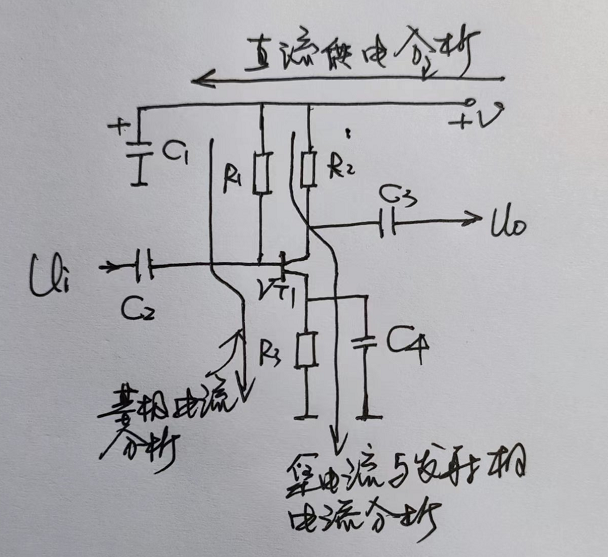 直流供电分析
+V
+
C1
R1
R2
C3
Uo
Ui
C2
VT1
R3
C4
基极电流
分析
集电流与发射极
电流分析